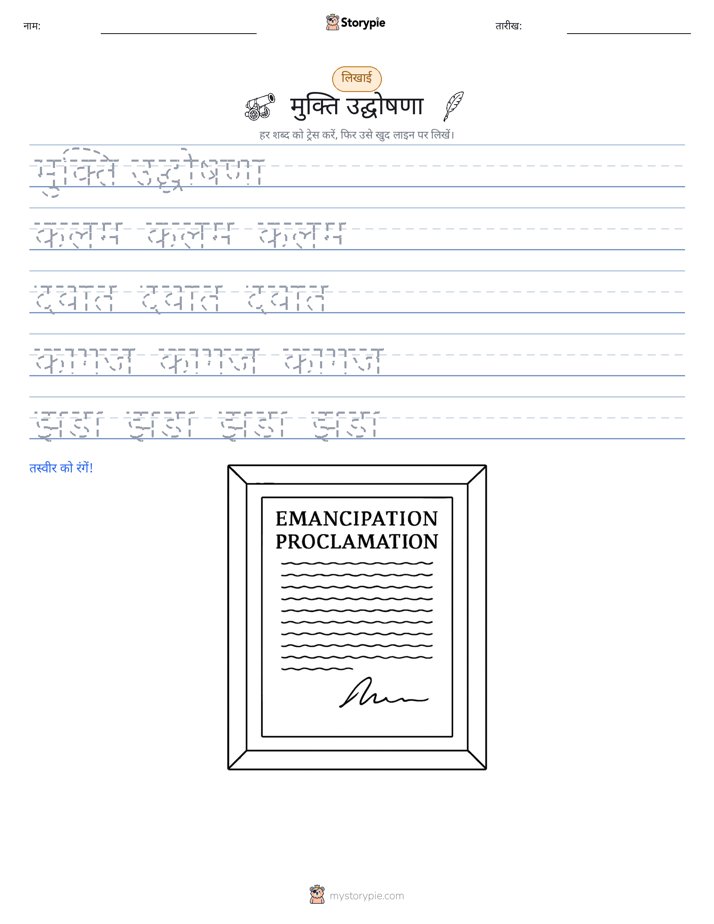 नाम:
Storypie
तारीख:
लिखाई
मुक्ति उद्घोषणा
हर शब्द को ट्रेस करें, फिर उसे खुद लाइन पर लिखें।
मुक्ति उद्घोषणा
कलम कलम कलम
दवात दवात दवात
कागज कागज कागज
झडा झडा झडा झडा
तस्वीर को रंगें!
EMANCIPATION
PROCLAMATION
mystorypie.com